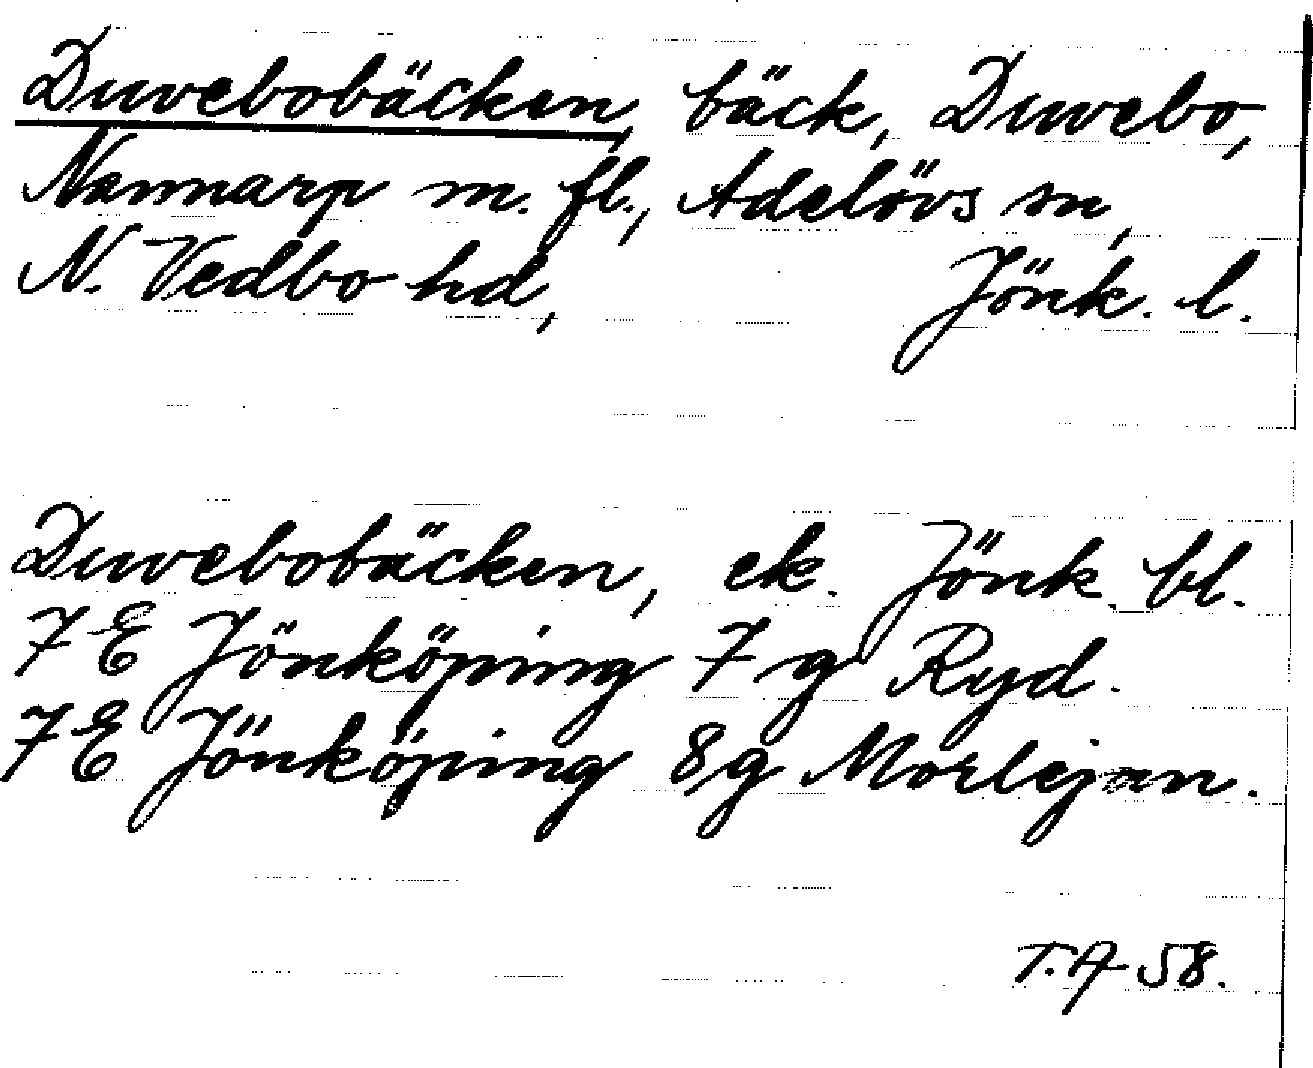 Duvebobäcken, bäck, Duvebo,
Nannarp m. fl., Adelövs sn,
N. Vedbo hd, Jönk. l.
Duvebobäcken, ek. Jönk. bl.
7 E Jönköping 7 g Ryd.
7 E Jönköping 8 g Morlejan.
T.A 58.